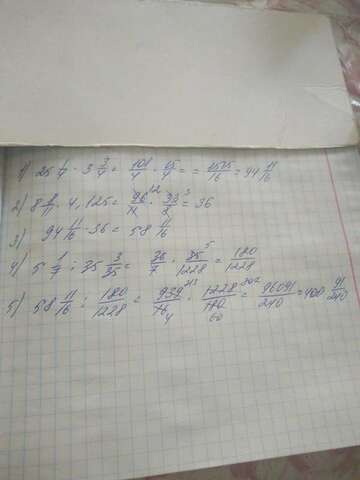 1) 25 1/4 · 3 3/4 = 101/4 · 15/4 = = 1515/16 = 94 11/16
2) 8 8/11 · 4,125 = 96/11 12 · 33/8 3 = 36
3) 94 11/16 - 36 = 58 11/16
4) 5 1/7 : 35 3/35 = 36/7 · 35/1228 5 = 180/1228
5) 58 11/16 : 180/1228 = 939/16 313 4 · 1228/180 60 = 96091/240 = 400 91/240